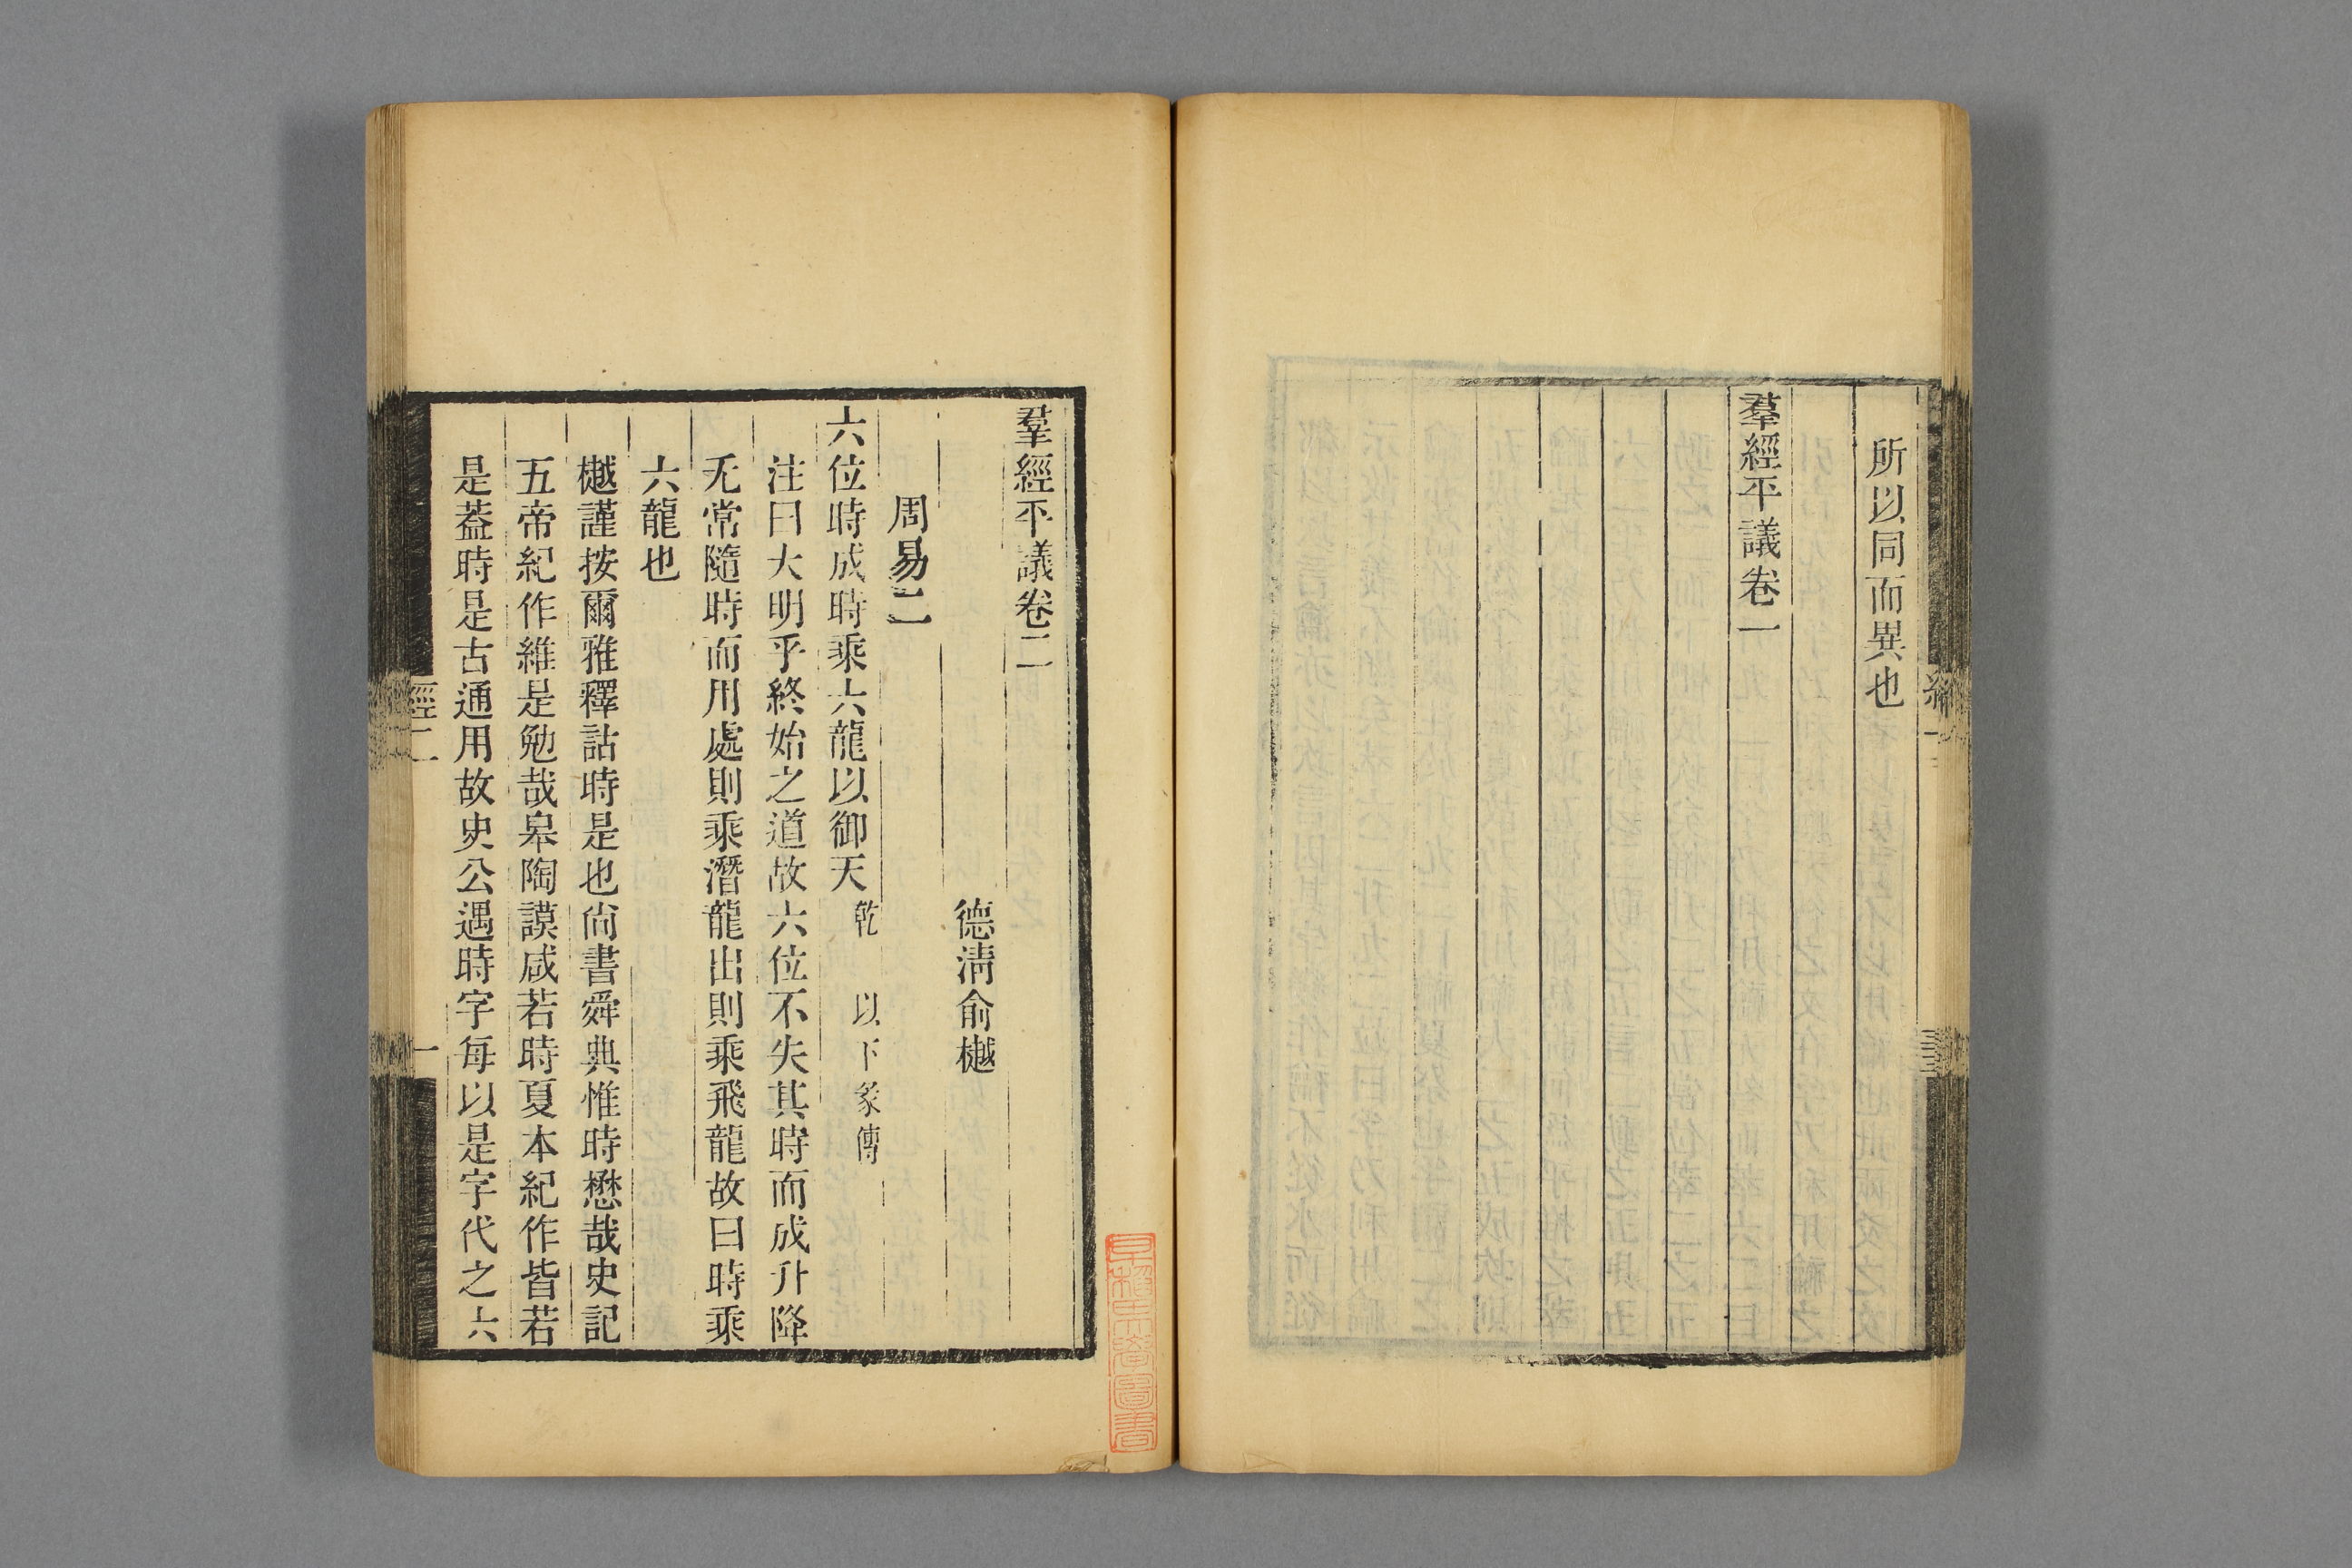 所以同而異也
羣經平議卷一
羣經平議卷二
德淸俞樾
周易二
六位時成時乘六龍以御天 乾 以下彖傳
注曰大明乎終始之道故六位不失其時而成升降
无常隨時而用處則乘潛龍出則乘飛龍故曰時乘
六龍也
樾謹按爾雅釋詁時是也尙書舜典惟時懋哉史記
五帝紀作維是勉哉皋陶謨咸若時夏本紀作皆若
是蓋時是古通用故史公遇時字每以是字代之六
經二
一